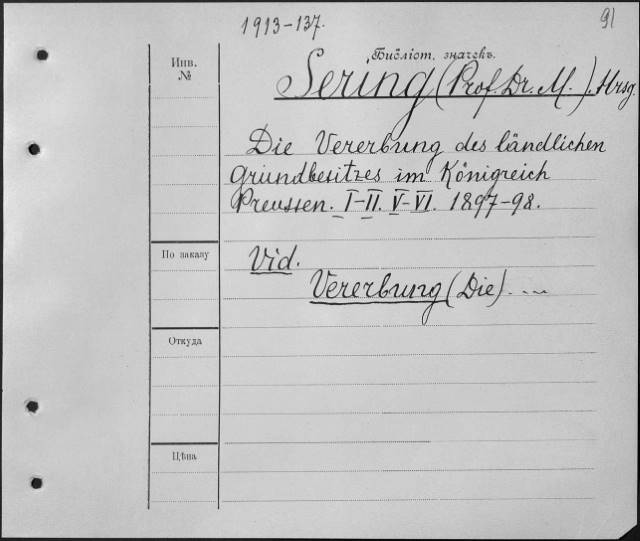 1913-137.
91
Инв.
№
Библіот. значекъ.
Sering (Prof. Dr. M.). Hrsg.
Die Vererbung des ländlichen
Grundbesitzes im Königreich
Preussen. I-II. V-VI. 1897-98.
По заказу
Vid.
Vererbung (Die)....
Откуда
Цѣна